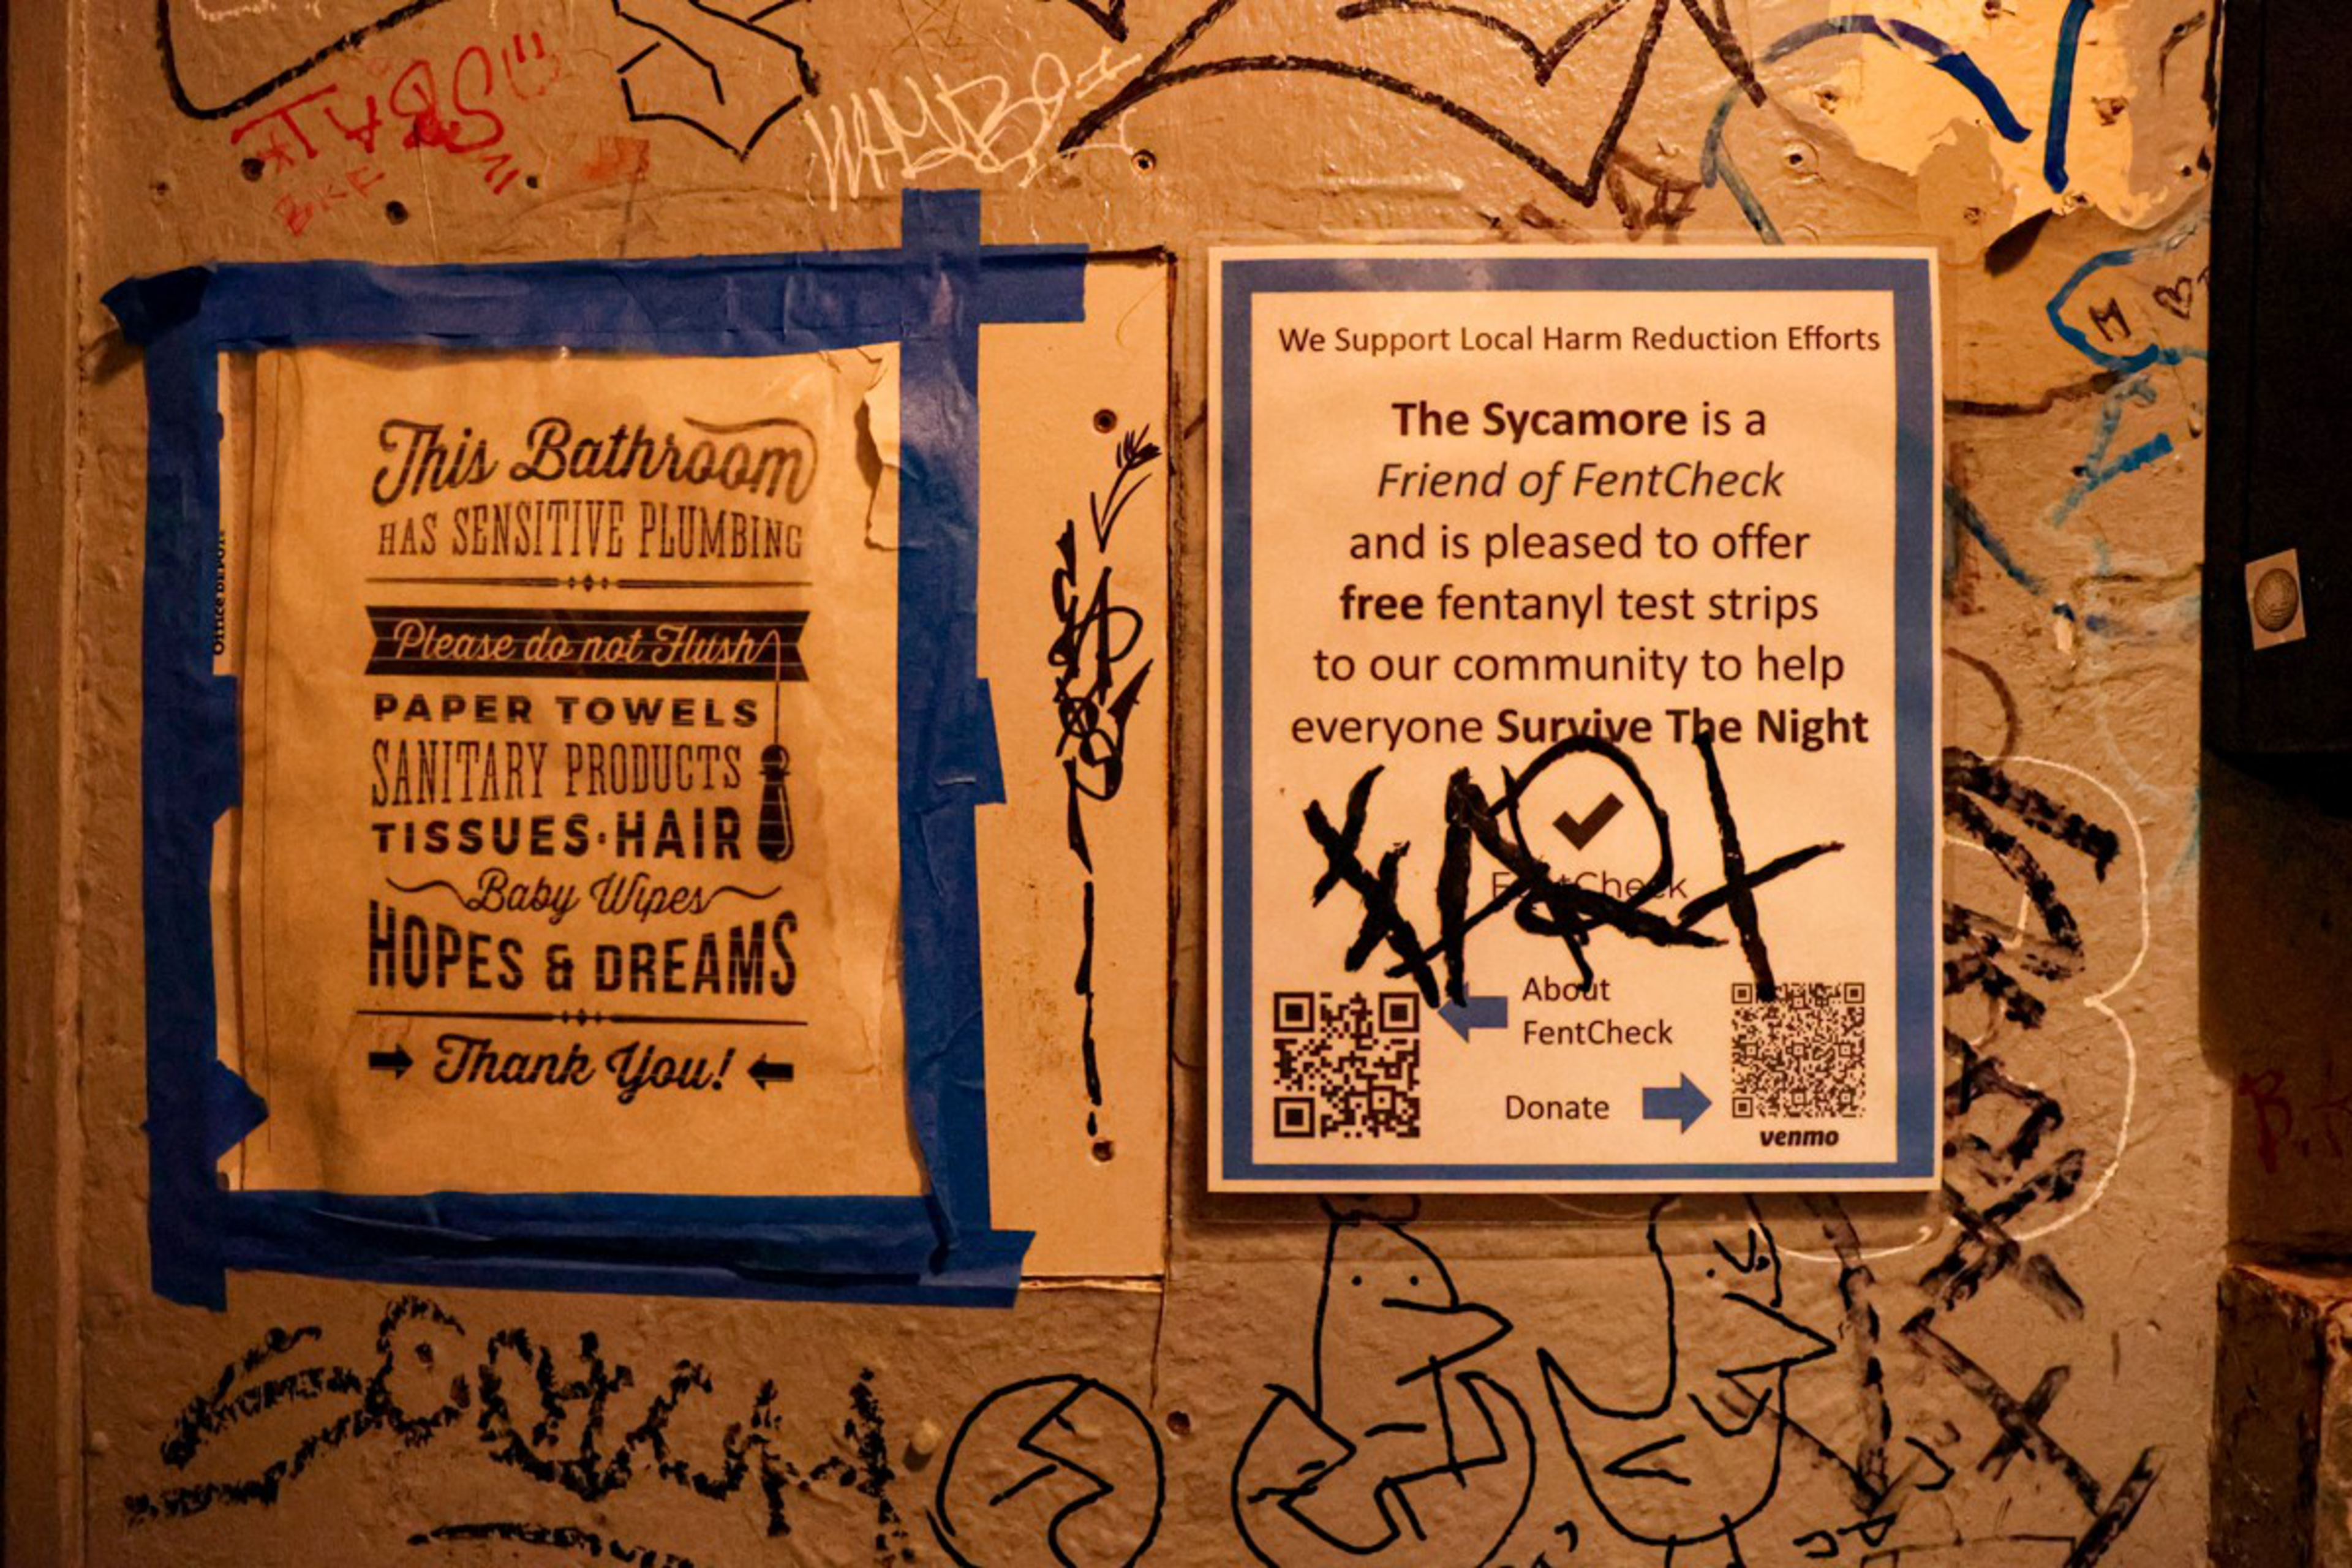 This Bathroom
HAS SENSITIVE PLUMBING
Please do not Flush
PAPER TOWELS
SANITARY PRODUCTS
TISSUES·HAIR
Baby Wipes
HOPES & DREAMS
Thank You!
Office DEPOT
We Support Local Harm Reduction Efforts
The Sycamore is a
Friend of FentCheck
and is pleased to offer
free fentanyl test strips
to our community to help
everyone Survive The Night
FentCheck
About
FentCheck
Donate
venmo